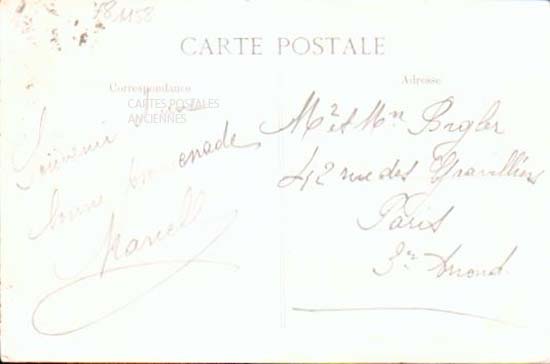 78 1158
CARTE POSTALE
Correspondance
Adresse
CARTES POSTALES
ANCIENNES
Souvenir d'une
bonne promenade
Marcell
Mr et Mme Bigler
42 rue des Gravilliers
Paris
3e Arrond.